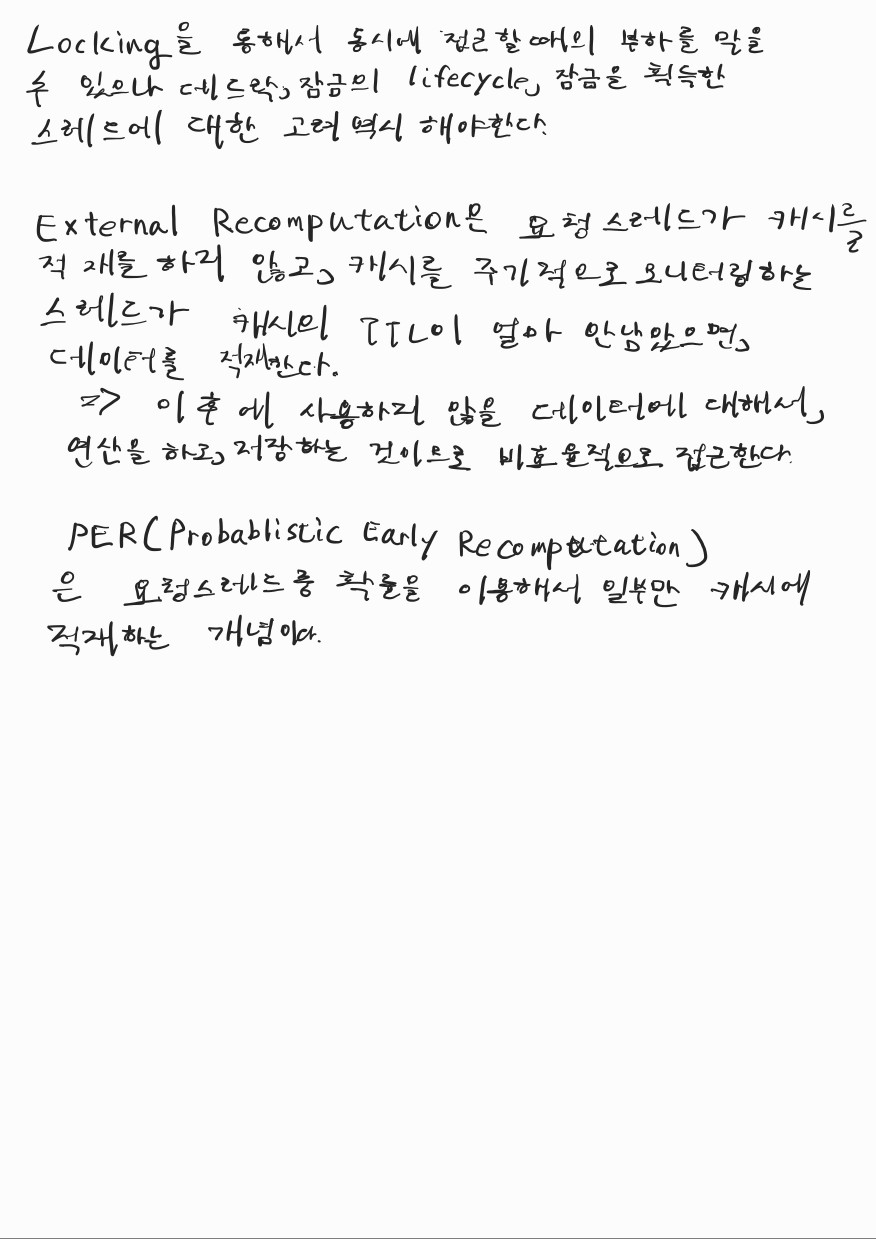 Locking을 통해서 동시에 접근할 때의 부하를 막을
수 있으나 데드락, 잠금의 lifecycle, 잠금을 획득한
스레드에 대한 고려 역시 해야한다.
External Recomputation은 요청 스레드가 캐시를
적재를 하지 않고, 캐시를 주기적으로 모니터링하는
스레드가 캐시의 TTL이 얼마 안남았으면,
데이터를 적재한다.
=> 이후에 사용하지 않을 데이터에 대해서,
연산을 하고, 저장하는 것이므로 비효율적으로 접근한다.
PER(Probablistic Early Recomputation)
은 요청스레드 중 확률을 이용해서 일부만 캐시에
적재하는 개념이다.